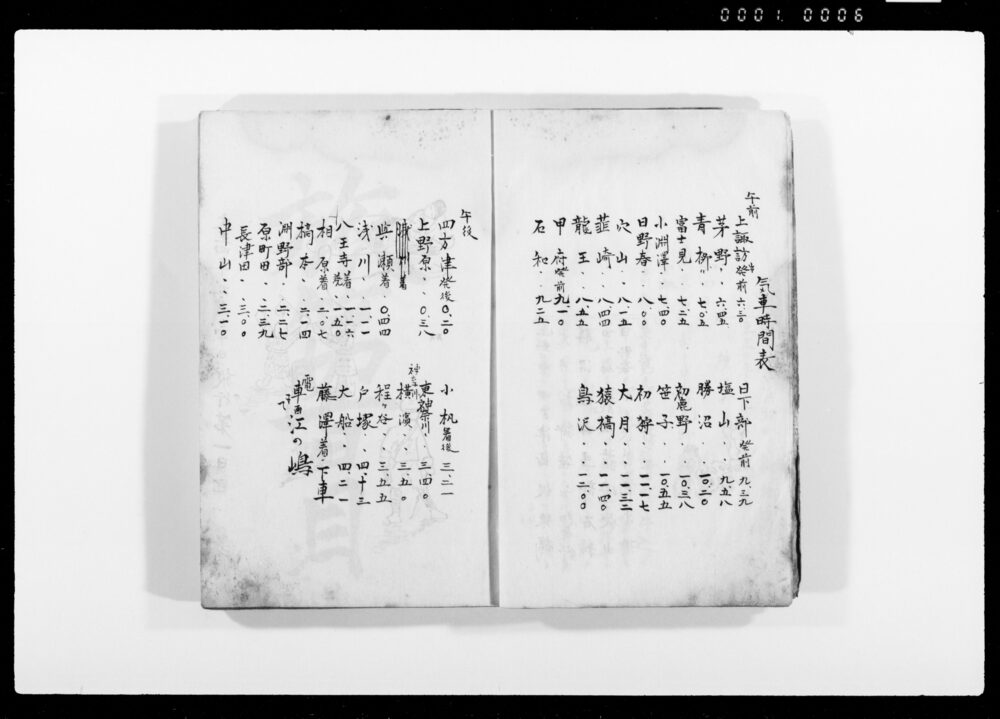 0001. 0006
汽車時間表
午前
上諏訪発前六、三〇
茅野、六、四五
青柳〃七、〇五
富士見、七、二五
小淵澤、七、四〇
日野春、八、〇〇
穴山、八、一五
韮崎、八、四四
龍王、八、五五
甲府発前九、一〇
石和、九、二五
日下部発前九、三九
塩山、九、五八
勝沼、一〇、二〇
初鹿野、一〇、三八
笹子、一〇、五五
初狩、一一、一七
大月、一一、三二
猿橋、一一、四〇
鳥沢、一二、〇〇
午後
四方津発後〇、二〇
上野原、〇、三八
與瀬着、〇、四四
浅川、一、一
八王寺着、一、二六
発、一、五〇
相原着、二、〇七
橋本、二、一四
淵野部、二、二七
原町田、二、三九
長津田、三、〇〇
中山、三、一〇
小机着後三、二一
東神奈川、三、四〇
横濱、三、五〇
程ヶ谷、三、五五
戸塚、四、十三
大船、四、二一
藤澤着、下車
電車ニて江の嶋